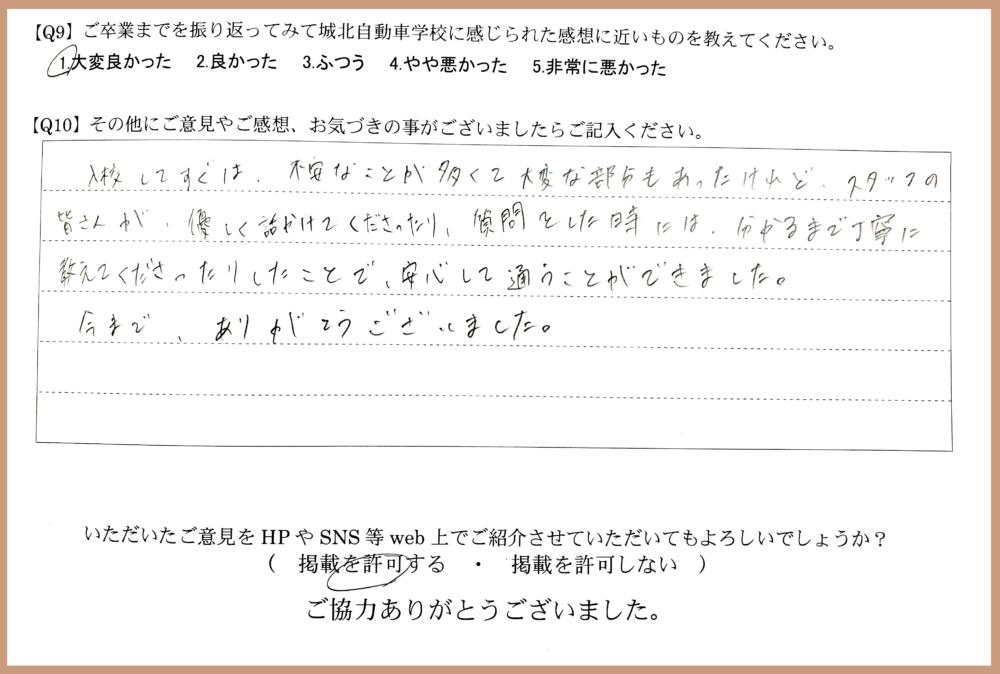 【Q9】ご卒業までを振り返ってみて城北自動車学校に感じられた感想に近いものを教えてください。
1.大変良かった 2.良かった 3.ふつう 4.やや悪かった 5.非常に悪かった
【Q10】その他にご意見やご感想、お気づきの事がございましたらご記入ください。
入校してすぐは、不安なことが多くて大変な部分もあったけれど、スタッフの
皆さんが、優しく話かけてくださったり、質問をした時には、分かるまで丁寧に
教えてくださったりしたことで、安心して通うことができました。
今まで、ありがとうございました。
いただいたご意見をHPやSNS等web上でご紹介させていただいてもよろしいでしょうか？
( 掲載を許可する ・ 掲載を許可しない )
ご協力ありがとうございました。